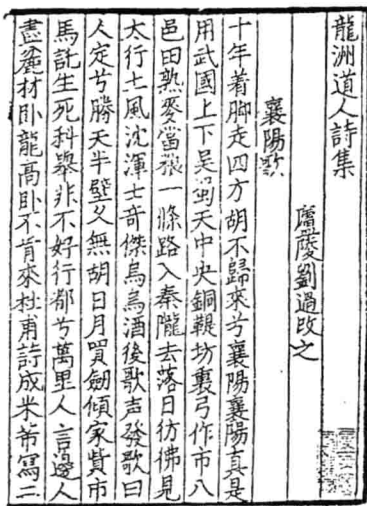 龍洲道人詩集
廬陵劉過改之
襄陽歌
十年着脚走四方胡不歸來兮襄陽襄陽真是
用武國上下吴蜀天中央銅鞮坊裏弓作市八
邑田熟麥當粮一條路入秦隴去落日彷彿見
太行土風沈渾士奇傑烏烏酒後歌声發歌曰
人定兮勝天半壁久無胡日月買劒傾家貲市
馬託生死科舉非不好行都兮萬里人言邊人
盡麄材卧龍高卧不肯來杜甫詩成米芾寫二